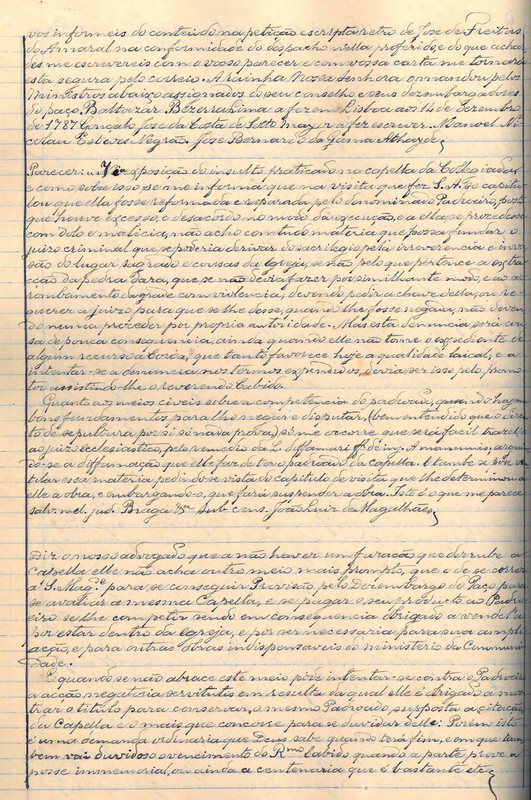 vos informeis do conteudo na petição escripta retro de Jose de Freitas
do Amaral na conformidade do despacho nella proferido, e do que achar-
des me escrevereis com o vosso parecer e com vossa carta me tornará
esta segura pelo correio. A rainha Nossa Senhora o mandou pelos
Ministros abaixo assignados do seu conselho e seus dezembargadores
do paço. Balthazar Bezerra Lima a fez em Lisboa aos 14 de Dezembro
de 1787 Gonçalo Jose da Costa de Sotto mayor a fez escrever. Manoel Ni-
colau Esteves Negrão. Jose Bernardo da Gama Athayde
Parecer: Vi exposição do insulto praticado na capella da Collegiada,
e como sobre isso se me informa que na visita que fez S. A. Se capitu-
lou que ella fosse reformada e reparada pelo denominado Padroeiro, posto
que houve excesso, e desacordo no modo da execução, e a ella se procedesse
com Dolo e malicia, não acho comtudo materia que possa fundar o
juizo criminal que se poderia derivar do sacrilegio pela irreverencia e inva-
são do lugar sagrado e cousas da Igreja, se não pelo que pertence a extra-
cção da pedra Dara, que se não devia fazer por similhante modo, e ao ar-
rombamento da grade com violencia, devendo pedir a chave della, ou re-
querer a juizo para que se lhe desse, quando lhe fosse negada, não deven-
do nunca proceder por propria autoridade. Mas esta denuncia será cou-
sa de pouca consequencia, ainda quando elle não tome o expediente de
algum recurso á Coroa, que tanto favorece hoje a qualidade laical, e a
intentar-se a denuncia nos termos expendidos, devia ser isso pelo promo-
tor assistindo-lhe o reverendo Cabido.
Quanto aos meios civeis sobre a competencia do padroado, quando haja
bons fundamentos para lho negar e disputar, (bem entendido que o direi-
to de sepultura por si só nada prova) só me occorre que será facil trazel-o
ao juizo ecclesiastico, pelo remedio da L. diffamari ff de ing. A manumis, arguin-
do-se a diffamação que elle faz de ter o padroado da capella. E tambem se póde ar-
ticular essa materia pedindo-se vista do capitulo de visita, que lhe determinou a
elle a obra, e embargando-o, que fará suspender a obra. Isto é o que me parece
salvo mel. jud. Braga &ª Sub cens. João Luiz de Magalhães
Diz o nosso advogado que a não haver um furacão que derrube a
Capella elle não acha outro meio mais prompto, que o de se correr
a S. Mag.e para se conseguir Provisão pelo Dezembargo do Paço para
se avaliar a mesma Capella, e se pagar o seu producto ao Padro-
eiro se lhe competir sendo em consequencia obrigado a vendel-a
por estar dentro da Igreja, e por ser necessaria para sua ampli-
ação, e para outras obras indispensaveis do ministerio da Communi-
dade.
E quando se não abrace este meio póde intentar-se contra o Padroeiro
a acção negatoria servitutis em resulta da qual elle é obrigado a mos-
trar o titulo para conservar, o mesmo Padroado, supposta a situação
da Capella e o mais que concorre para se duvidar delle: Porém isto
é uma demanda ordinaria que Deus sabe quando terá fim, e em que tam-
bem vai duvidoso o vencimento do R.mo Cabido quando a parte prove a
posse immemorial, ou ainda a centenaria que é bastante etc.